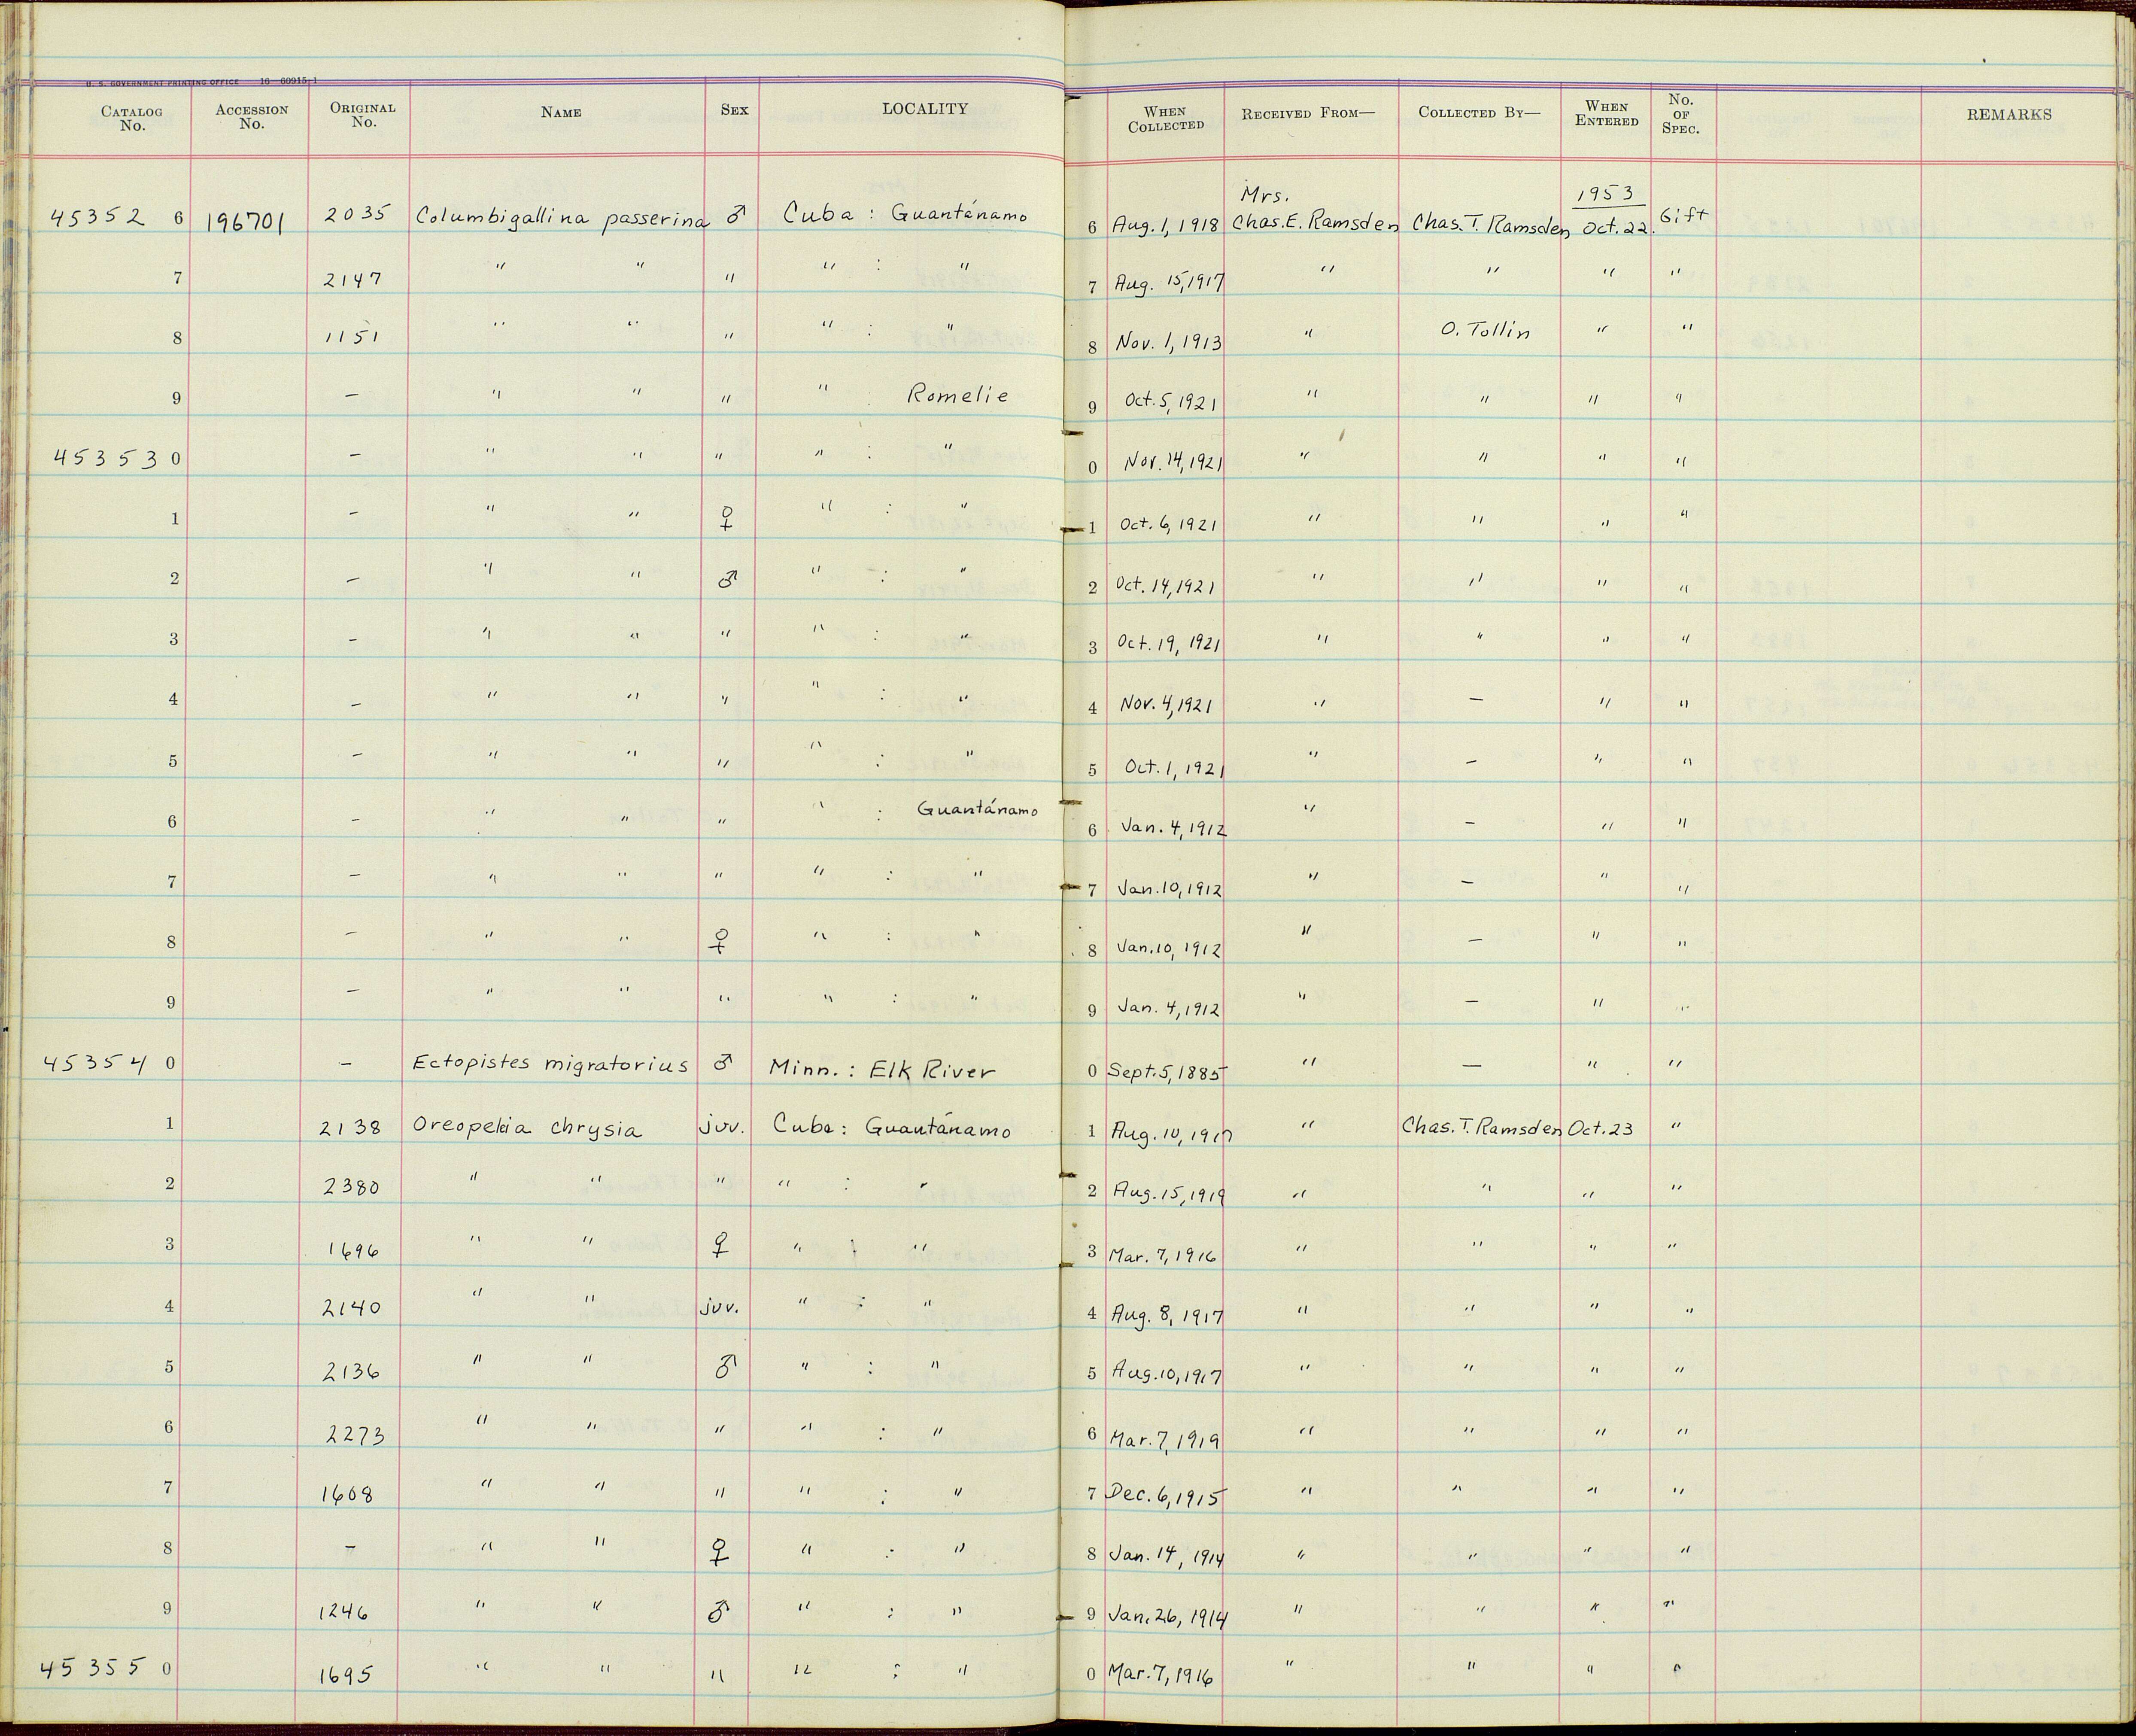 U. S. GOVERNMENT PRINTING OFFICE 16—60915-1
CATALOG No. ACCESSION No. ORIGINAL No. NAME SEX LOCALITY WHEN COLLECTED RECEIVED FROM— COLLECTED BY— WHEN ENTERED No. OF SPEC. REMARKS
45352 6 196701 2035 Columbigallina passerina ♂ Cuba : Guantánamo 6 Aug. 1, 1918 Mrs. Chas. E. Ramsden Chas. T. Ramsden 1953 Oct. 22. Gift
7 2147 " " " " : " 7 Aug. 15, 1917 " " " "
8 1151 " " " " : " 8 Nov. 1, 1913 " O. Tollin " "
9 — " " " " Romelie 9 Oct. 5, 1921 " " " "
45353 0 — " " " " : " 0 Nov. 14, 1921 " " " "
1 — " " ♀ " : " 1 Oct. 6, 1921 " " " "
2 — " " ♂ " : " 2 Oct. 14, 1921 " " " "
3 — " " " " : " 3 Oct. 19, 1921 " " " "
4 — " " " " : " 4 Nov. 4, 1921 " — " "
5 — " " " " : " 5 Oct. 1, 1921 " — " "
6 — " " " " : Guantánamo 6 Jan. 4, 1912 " — " "
7 — " " " " : " 7 Jan. 10, 1912 " — " "
8 — " " ♀ " : " 8 Jan. 10, 1912 " — " "
9 — " " " " : " 9 Jan. 4, 1912 " — " "
45354 0 — Ectopistes migratorius ♂ Minn. : Elk River 0 Sept. 5, 1885 " — " "
1 2138 Oreopeleia chrysia juv. Cuba : Guantánamo 1 Aug. 10, 1917 " Chas. T. Ramsden Oct. 23 "
2 2380 " " " " : " 2 Aug. 15, 1919 " " " "
3 1696 " " ♀ " : " 3 Mar. 7, 1916 " " " "
4 2140 " " juv. " : " 4 Aug. 8, 1917 " " " "
5 2136 " " ♂ " : " 5 Aug. 10, 1917 " " " "
6 2273 " " " " : " 6 Mar. 7, 1919 " " " "
7 1608 " " " " : " 7 Dec. 6, 1915 " " " "
8 — " " ♀ " : " 8 Jan. 14, 1914 " " " "
9 1246 " " ♂ " : " 9 Jan. 26, 1914 " " " "
45355 0 1695 " " " " : " 0 Mar. 7, 1916 " " " "